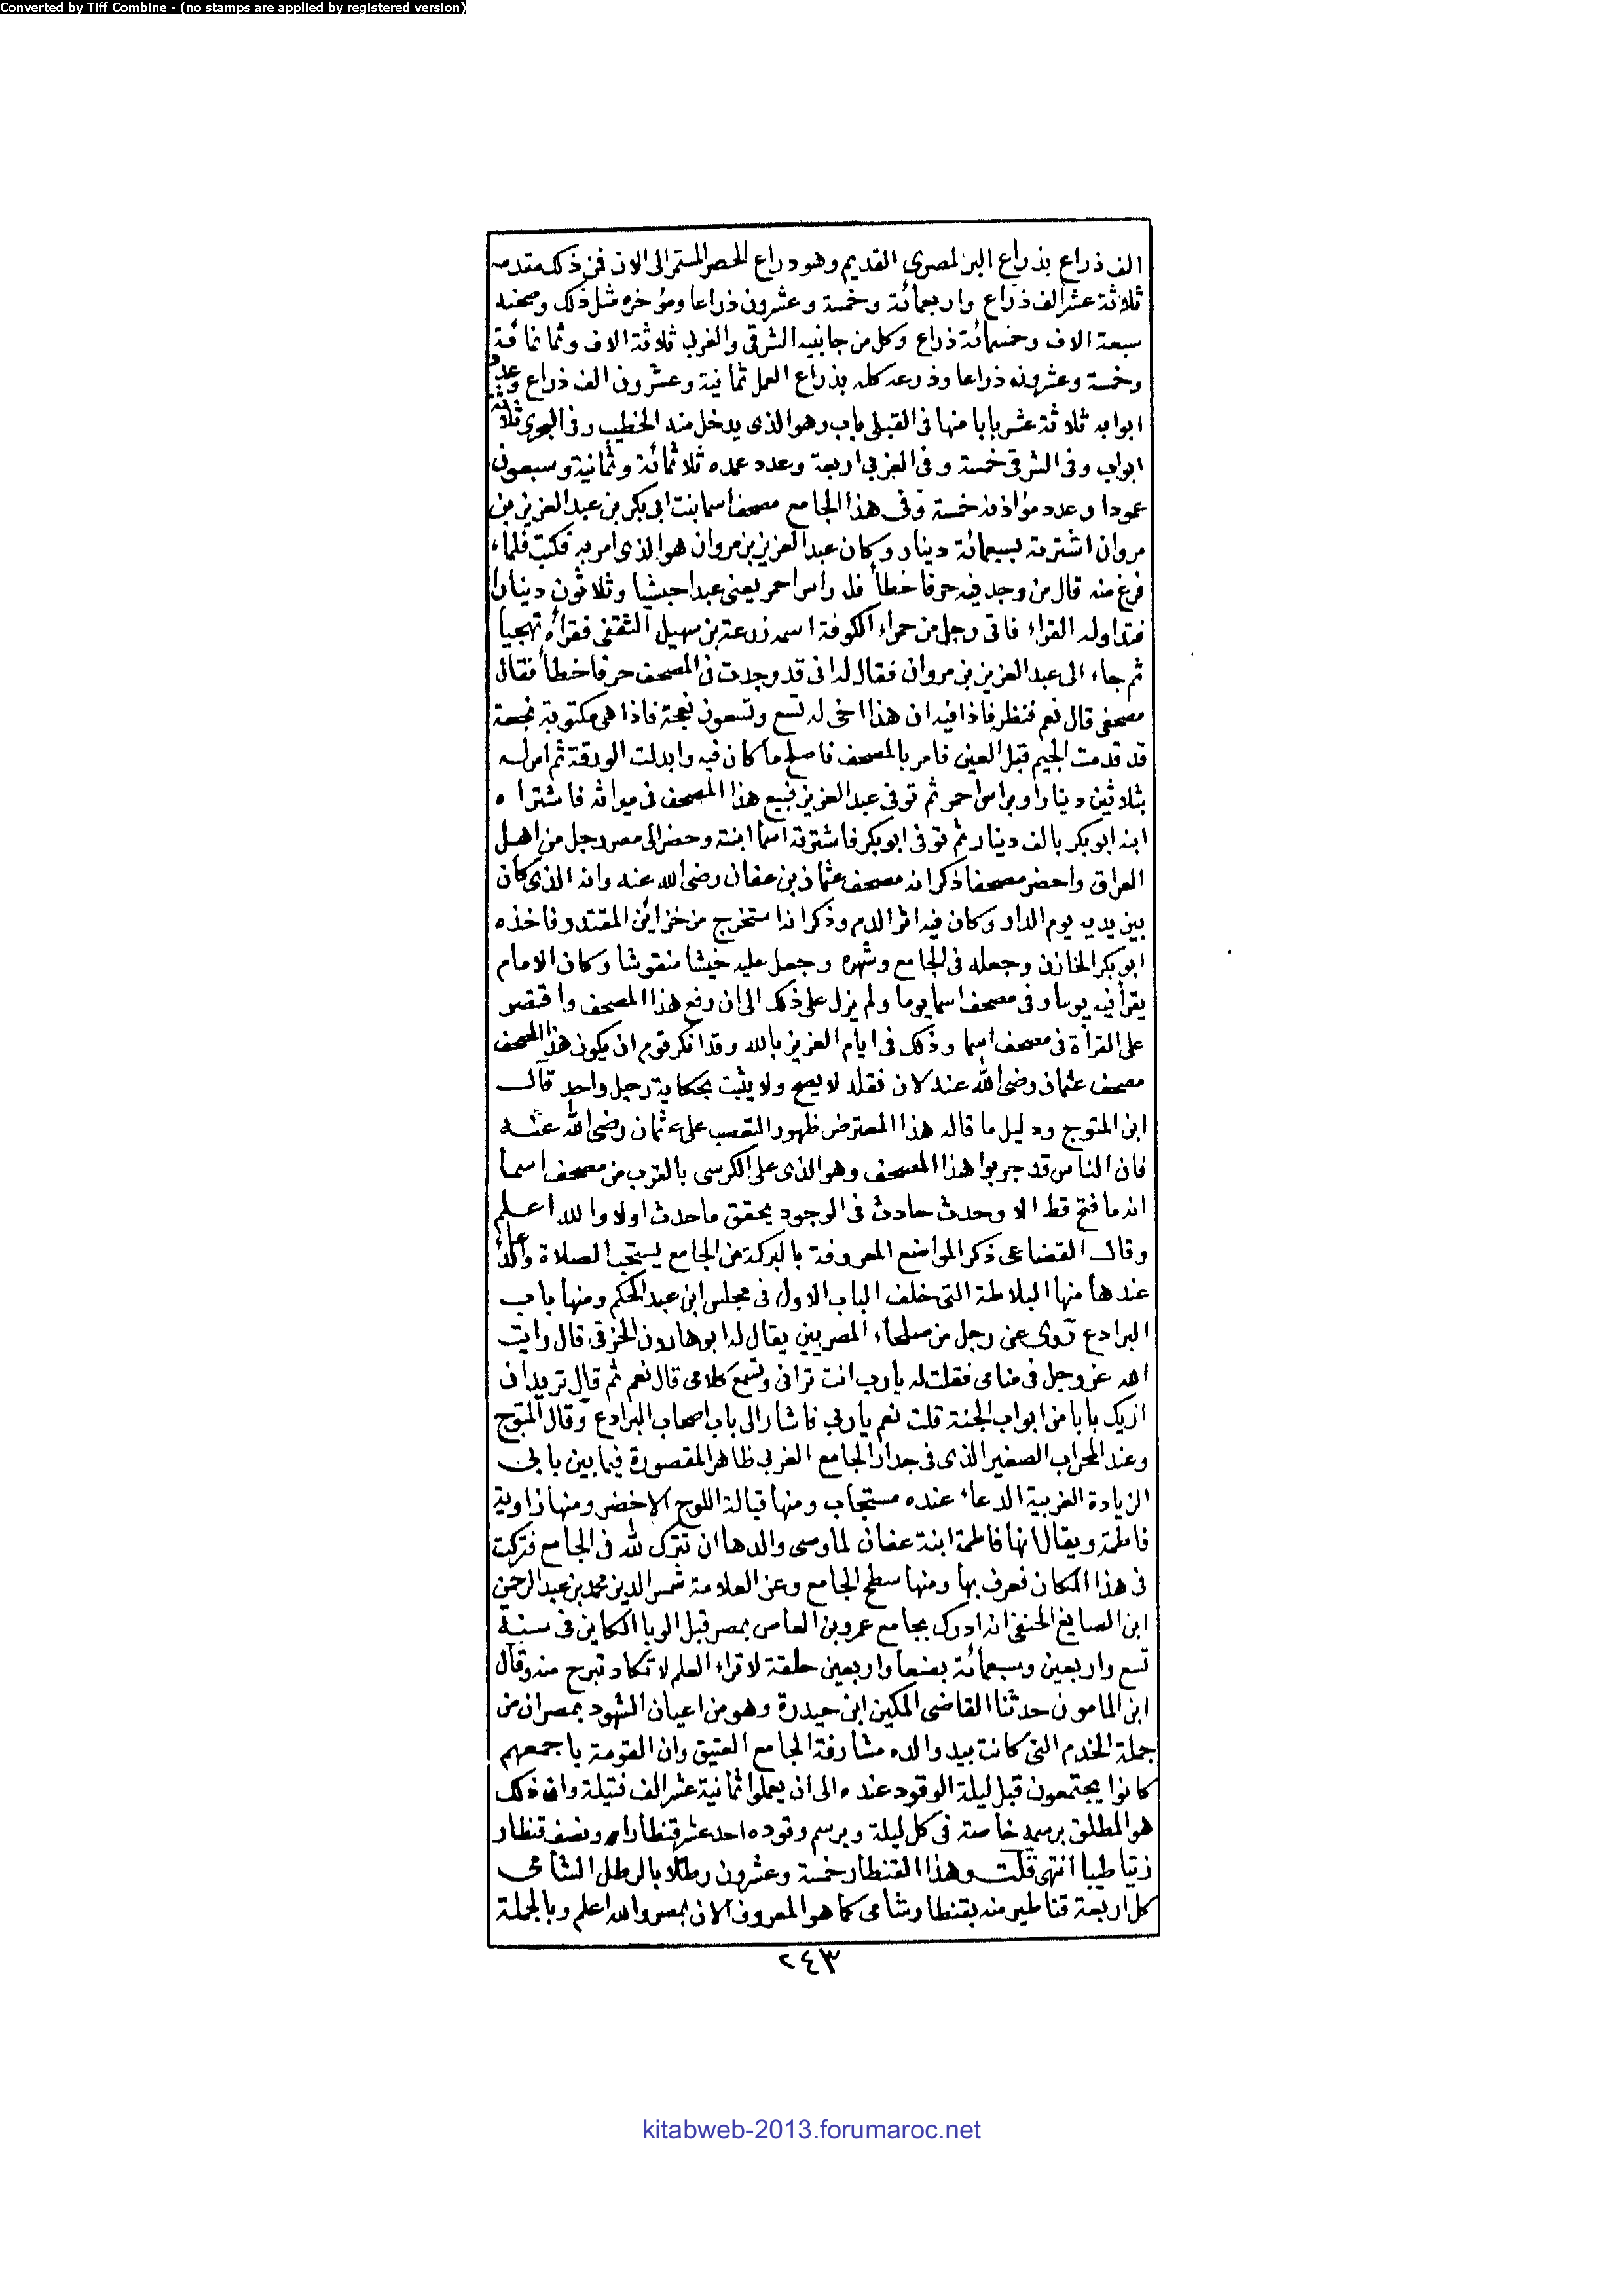 Converted by Tiff Combine - (no stamps are applied by registered version)
الف ذراع بذراع البز المصرى القديم وهو ذراع الحصر المستمر الى الان فمن ذلك مقدمه
ثلاثة عشر الف ذراع واربعمائة وخمسة وعشرون ذراعا ومؤخره مثل ذلك وصحنه
سبعة الاف وخمسمائة ذراع وكل من جانبيه الشرقى والغربى ثلاثة الاف وثمانمائة
وخمسة وعشرون ذراعا وذرعه كله بذراع العمل ثمانية وعشرون الف ذراع وعدد
ابوابه ثلاثة عشر بابا منها فى القبلى باب وهو الذى يدخل منه الخطيب وفى البحرى ثلاثة
ابواب وفى الشرقى خمسة وفى الغربى اربعة وعدد عمده ثلاثمائة وثمانية وسبعون
عمودا وعدد مواذنه خمسة وفى هذا الجامع مصحف اسما بنت ابى بكر بن عبد العزيز بن
مروان اشترته بسبعمائة دينار وكان عبد العزيز بن مروان هو الذى امر به فكتب فلما
فرغ منه قال من وجد فيه حرفا خطأ فله راس احمر يعنى عبدا حبشيا وثلاثون دينارا
فتداوله القراء فاتى رجل من حمراء الكوفة اسمه زرعة بن سهيل الثقفى فقرأه تهجيا
ثم جاء الى عبد العزيز بن مروان فقال له انى قد وجدت فى المصحف حرفا خطأ فقال
مصحفى قال نعم فنظر فاذا فيه ان هذا اخى له تسع وتسعون نعجة فاذا هى مكتوبة نجعة
قد قدمت الجيم قبل العين فامر بالمصحف فاصلح ما كان فيه وابدلت الورقة ثم امر له
بثلاثين دينارا وبراس احمر ثم توفى عبد العزيز فبيع هذا المصحف فى ميراثه فاشتراه
ابنه ابو بكر بالف دينار ثم توفى ابو بكر فاشترته اسما ابنته وحضر الى مصر رجل من اهل
العراق واحضر مصحفا ذكر انه مصحف عثمان بن عفان رضى الله عنه وانه الذى كان
بين يديه يوم الدار وكان فيه اثر الدم وذكر انه استخرج من خزائن المقتدر فاخذه
ابو بكر الخازن وجعله فى الجامع وشهره وجعل عليه خشبا منقوشا وكان الامام
يقرأ فيه يوما وفى مصحف اسما يوما ولم يزل على ذلك الى ان رفع هذا المصحف واقتصر
على القرأة فى مصحف اسما وذلك فى ايام العزيز بالله وقد انكر قوم ان يكون هذا المصحف
مصحف عثمان رضى الله عنه لان نقله لا يصح ولا يثبت بحكاية رجل واحد قال
ابن المتوج ودليل ما قاله هذا المعترض ظهور التعصب على عثمان رضى الله عنه
فان الناس قد جربوا هذا المصحف وهو الذى على الكرسى بالقرب من مصحف اسما
انه ما فتح قط الا وحدث حادث فى الوجود يحقق ما حدث اولا والله اعلم
وقال القضاعى ذكر المواضع المعروفة بالبركة من الجامع يستحب الصلاة والدعاء
عندها منها البلاطة التى خلف الباب الاول فى مجلس ابن عبد الحكم ومنها باب
البرادع روى عن رجل من صلحاء المصريين يقال له ابو هارون الخزقى قال رايت
الله عز وجل فى منامى فقلت له يارب انت ترانى وتسمع كلامى قال نعم ثم قال تريد ان
اريك بابا من ابواب الجنة قلت نعم يا ربى فاشار الى باب اصحاب البرادع وقال المتوج
وعند المحراب الصغير الذى فى جدار الجامع الغربى ظاهر المقصورة فيما بين بابى
الزيادة الغربية الدعاء عنده مستجاب ومنها قبالة اللوح الاخضر ومنها زاوية
فاطمة ويقال انها فاطمة ابنة عفان لما وصى والدها ان تترك لله فى الجامع فتركت
فى هذا المكان فعرف بها ومنها سطح الجامع وعن العلامة شمس الدين محمد بن عبد الرحمن
ابن الصايغ الحنفى انه ادرك بجامع عمرو بن العاص بمصر قبل الوبا الكاين فى سنة
تسع واربعين وسبعمائة بضعا واربعين حلقة لاقراء العلم لا تكاد تبرح منه وقال
ابن المامون حدثنا القاضى المكين ابن حيدرة وهو من اعيان الشهود بمصر ان من
جملة الخدم التى كانت بيد والده مشارفة الجامع العتيق وان القومة باجمعهم
كانوا يجتمعون قبل ليلة الوقود عنده الى ان يعملوا ثمانية عشر الف فتيلة وان ذلك
هو المطلق برسمه خاصة فى كل ليلة وبرسم وقوده احد عشر قنطارا ونصف قنطار
زيتا طيبا انتهى قلت وهذا القنطار خمسة وعشرون رطلا بالرطل الشامى
كل اربعة قناطير منه بقنطار شامى كما هو المعروف الان بمصر والله اعلم وبالجملة
٢٤٣
kitabweb-2013.forumaroc.net